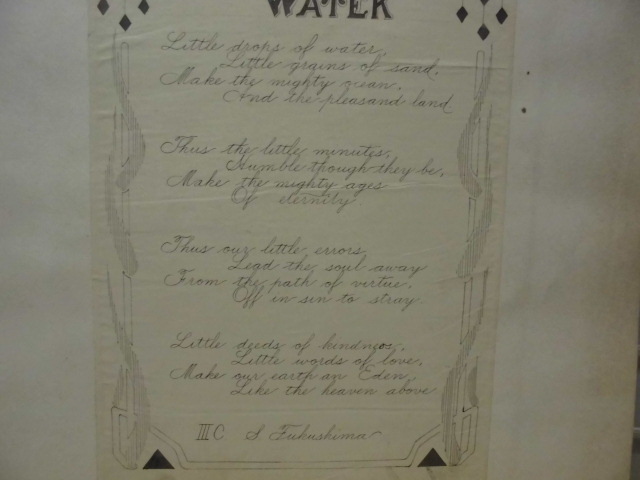 WATER
Little drops of water,
Little grains of sand,
Make the mighty ocean,
And the pleasand land
Thus the little minutes,
Humble though they be,
Make the mighty ages
Of eternity.
Thus our little errors
Lead the soul away
From the path of virtue,
Off in sin to stray.
Little deeds of kindness,
Little words of love,
Make our earth an Eden,
Like the heaven above.
III C S. Fukushima